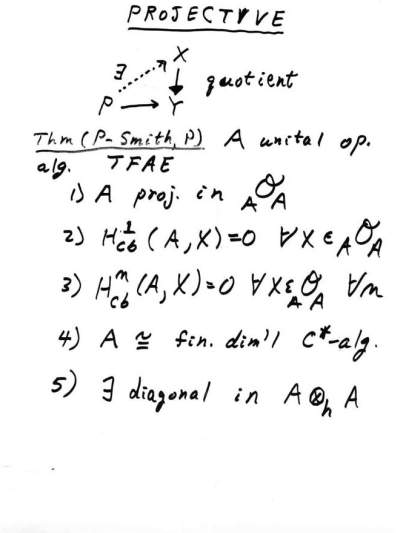 PROJECTIVE
X
∃
P → Y quotient
Thm (P-Smith, P) A unital op.
alg. TFAE
1) A proj. in _A O_A
2) H^1_cb (A, X) = 0 ∀ X ∈ _A O_A
3) H^n_cb (A, X) = 0 ∀ X ε _A O_A ∀ n
4) A ≅ fin. dim'l C*-alg.
5) ∃ diagonal in A ⊗_h A